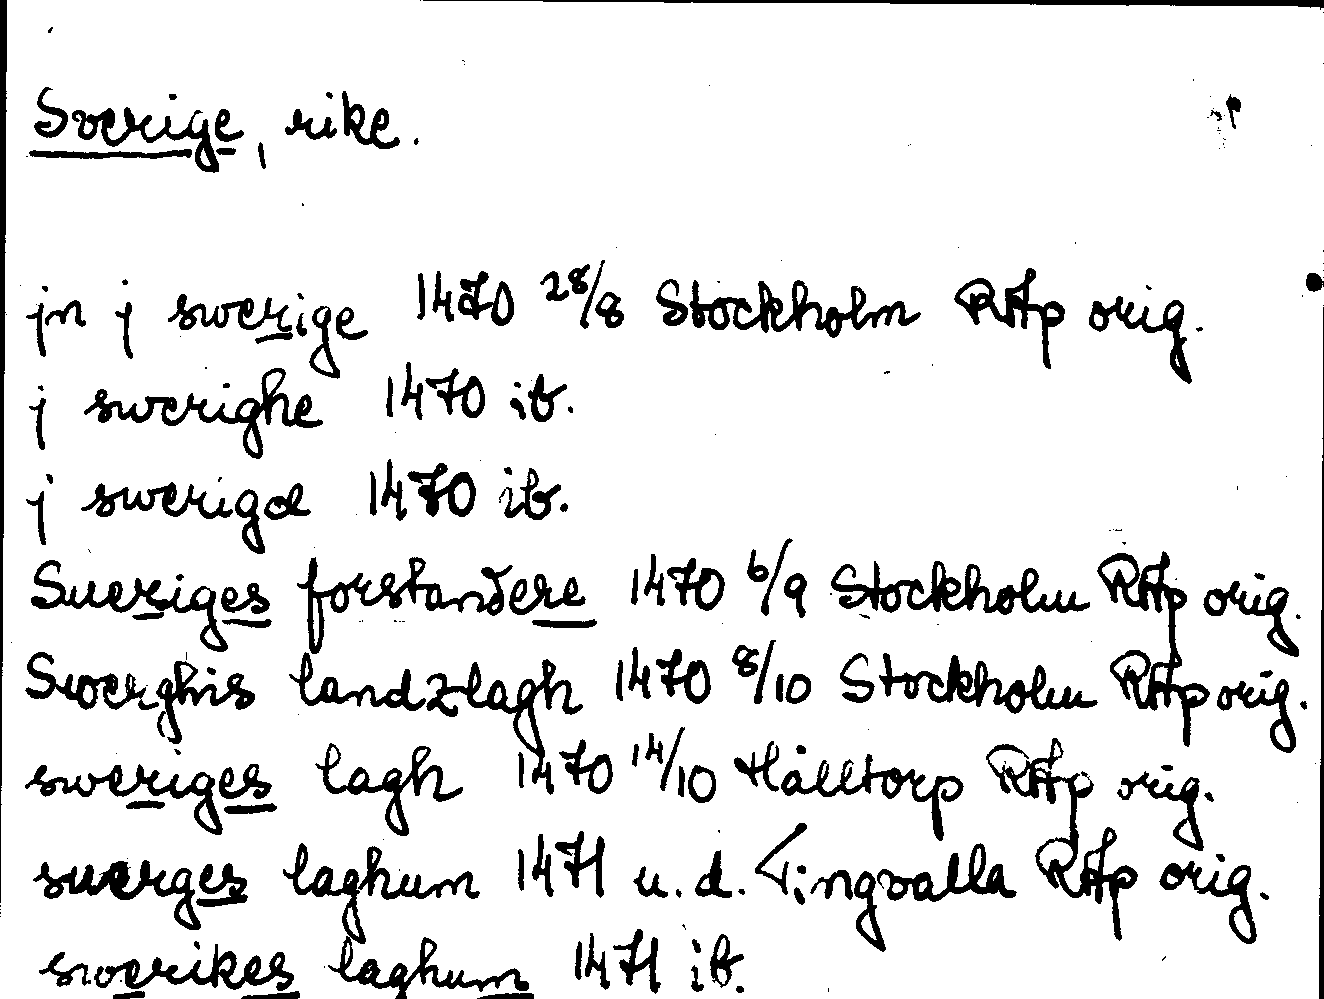 Sverige, rike.
jn j swerige 1470 28/8 Stockholm RAp orig.
j swerighe 1470 ib.
j swerigæ 1470 ib.
Sueriges forstandere 1470 6/9 Stockholm RAp orig.
Swerghis landzlagh 1470 8/10 Stockholm RAp orig.
sweriges lagh 1470 14/10 Hålltorp RAp orig.
swerges laghum 1471 u.d. Tingvalla RAp orig.
swerikes laghum 1471 ib.